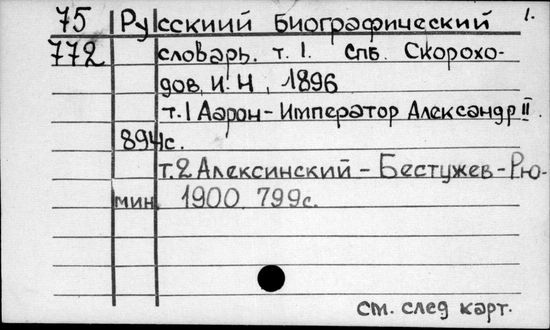 75 Русский Биографический 1.
772 словарь. т. 1. Спб. Скорохо-
дов, И. Н., 1896
т. 1 Аарон - Император Александр II.
894 с.
т. 2 Алексинский - Бестужев-Рю-
мин. 1900 799 с.
см. след карт.